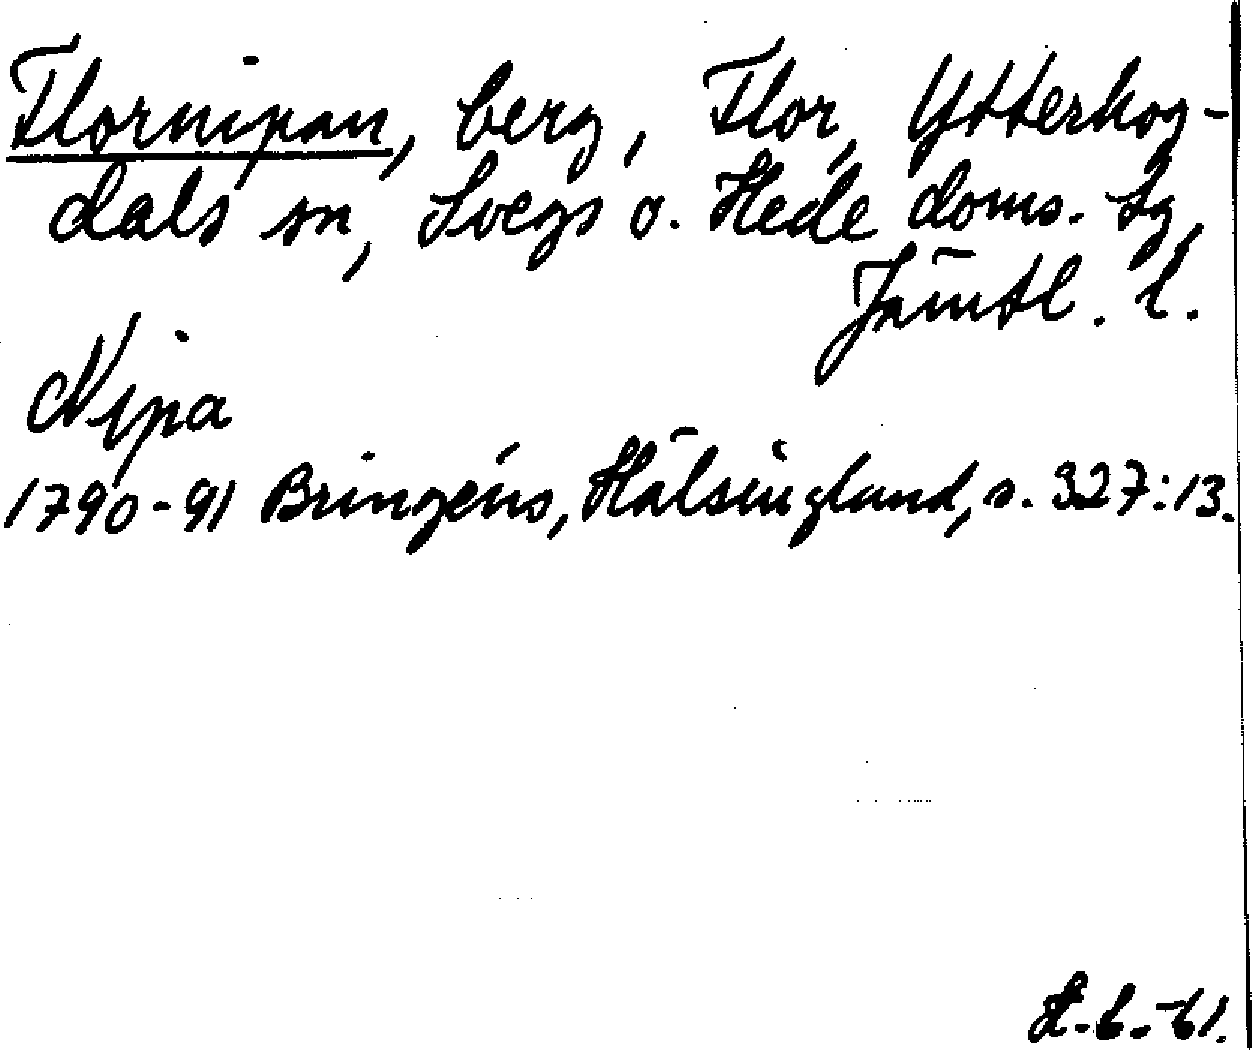 Flornipan, berg, Flor, Ytterhog-
dals sn, Svegs o. Hede doms. tg,
Jämtl. l.
Nipa
1790-91 Bringéus, Hälsingland, s. 327:13.